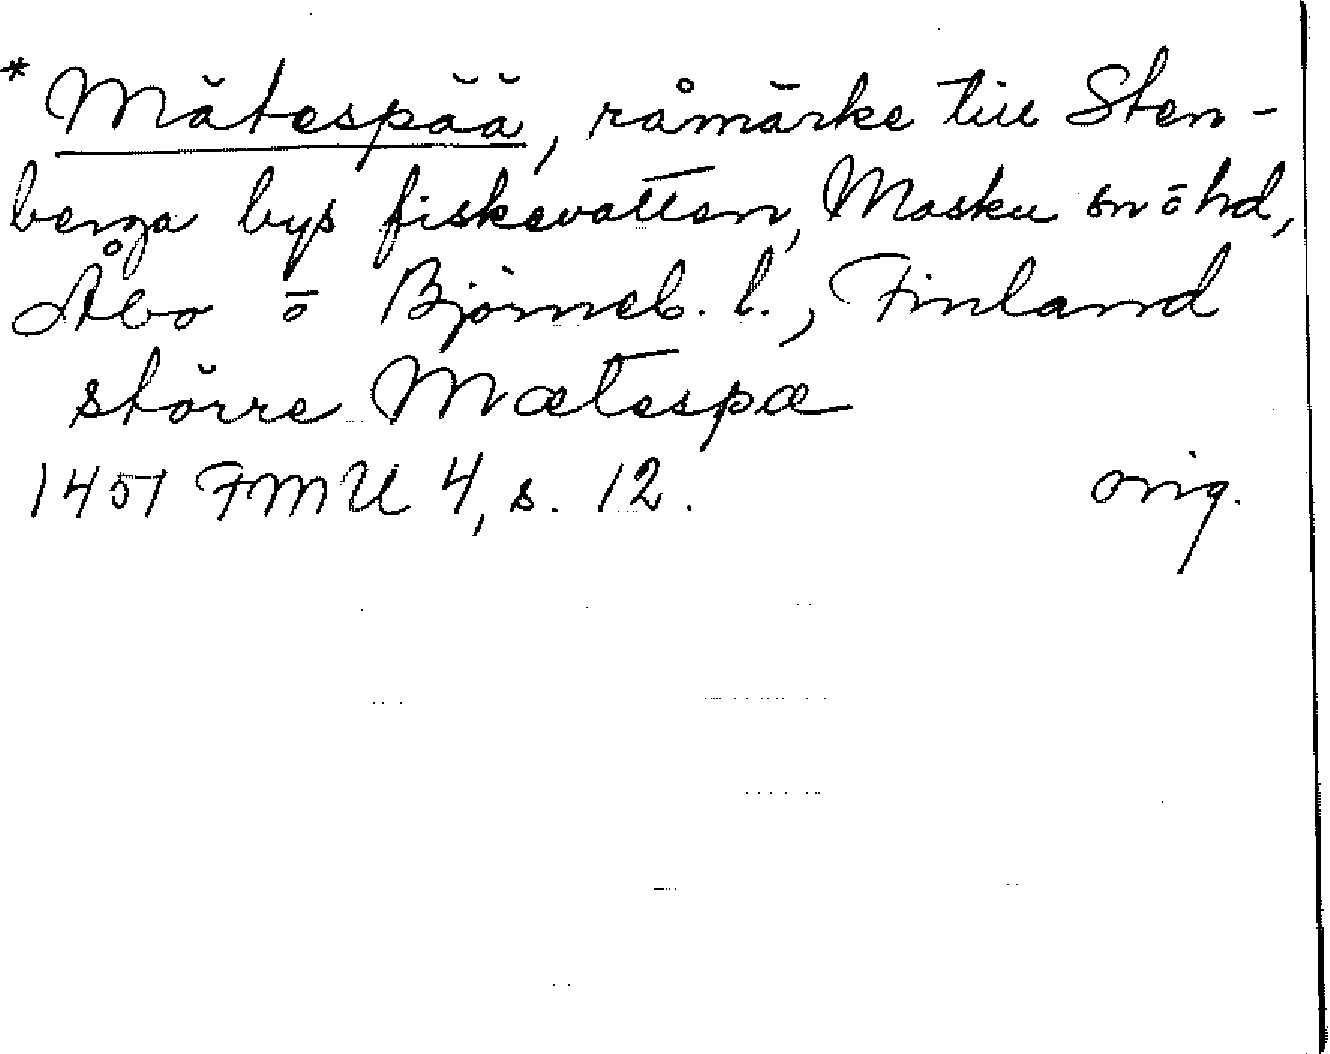 * Mätespää, råmärke till Sten-
berga bys fiskevatten, Masku sn ö hd,
Åbo ö Björneb. l., Finland
större Mætespæ
1451 FMU 4, s. 12. orig.